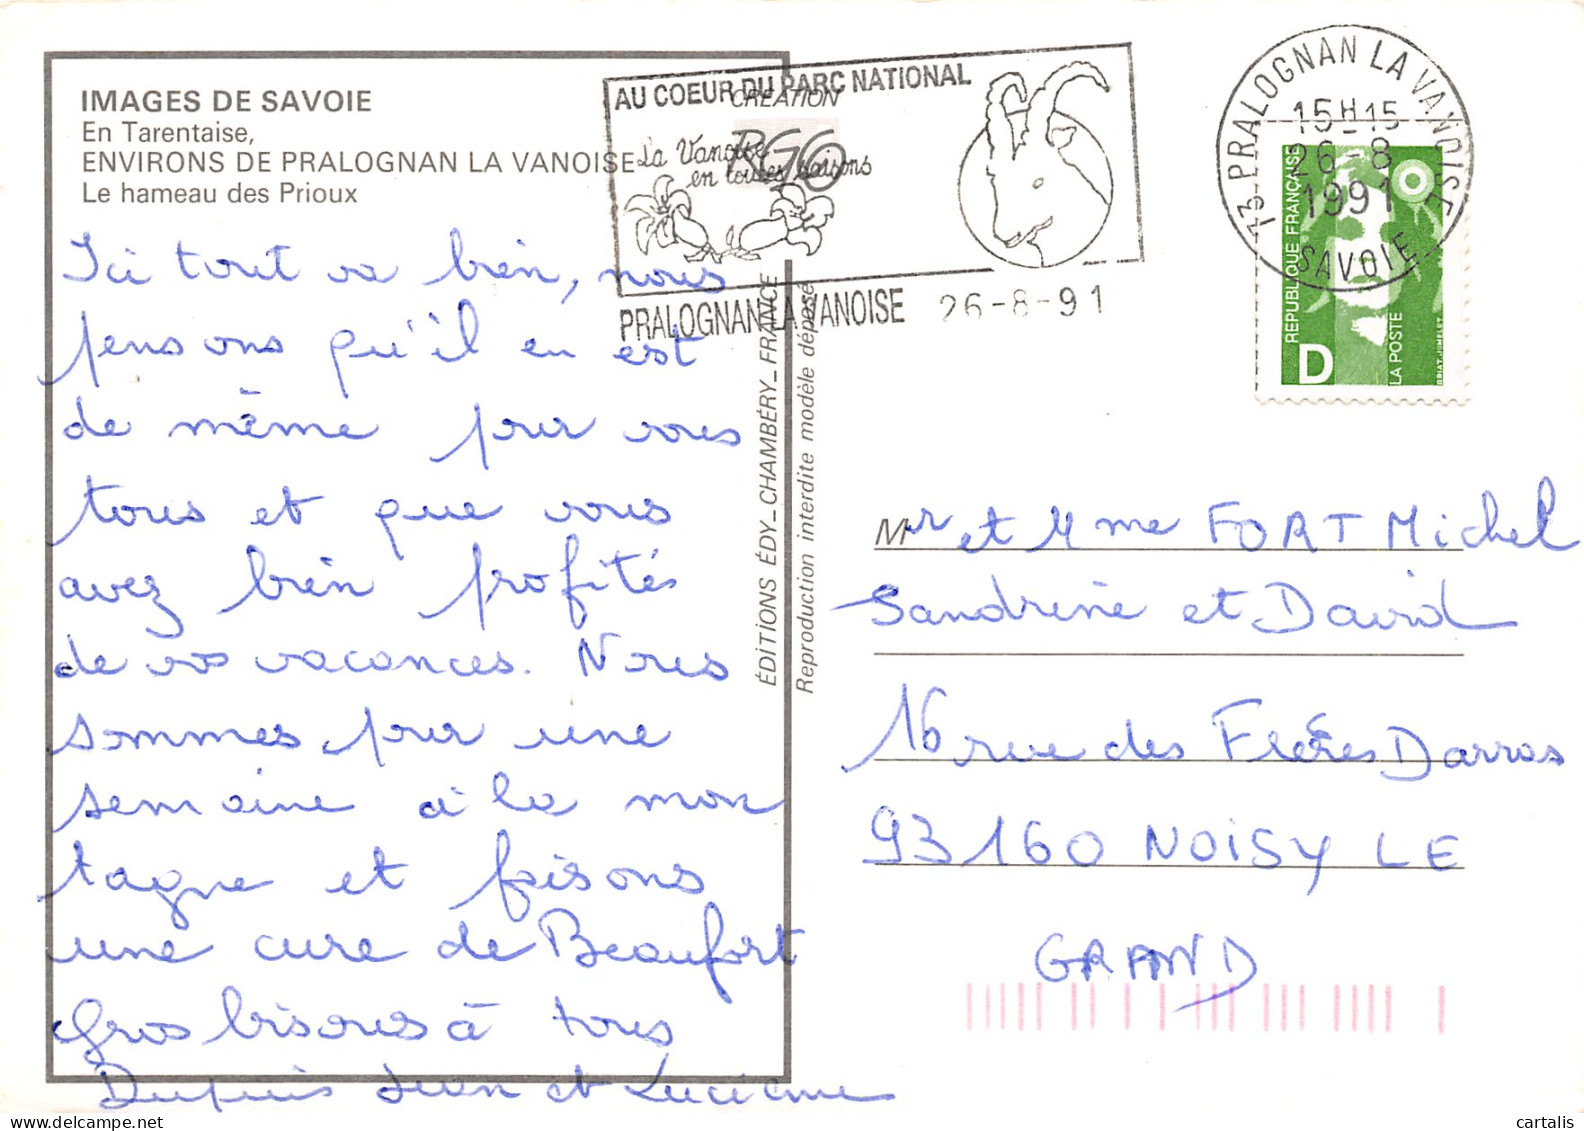 IMAGES DE SAVOIE
En Tarentaise,
ENVIRONS DE PRALOGNAN LA VANOISE
Le hameau des Prioux
Ici tout va bien, nous
pensons qu'il en est
de même pour vous
tous et que vous
avez bien profités
de vos vacances. Nous
sommes pour une
semaine à la mon
tagne et faisons
une cure de Beaufort
Gros bisous à tous
Dupuis Jean et Lucienne
AU COEUR DU PARC NATIONAL
CRÉATION
RGO
La Vanoise
en toutes saisons
PRALOGNAN LA VANOISE 26-8-91
ÉDITIONS ÉDY_CHAMBÉRY_FRANCE
Reproduction interdite modèle déposé
73 PRALOGNAN LA VANOISE
15H15
26-8
1991
SAVOIE
RÉPUBLIQUE FRANÇAISE
D
LA POSTE
BRIAT-JUMELET
Mr et Mme FORT Michel
Sandrine et David
16 rue des Frères Darras
93160 NOISY LE
GRAND
cartalis